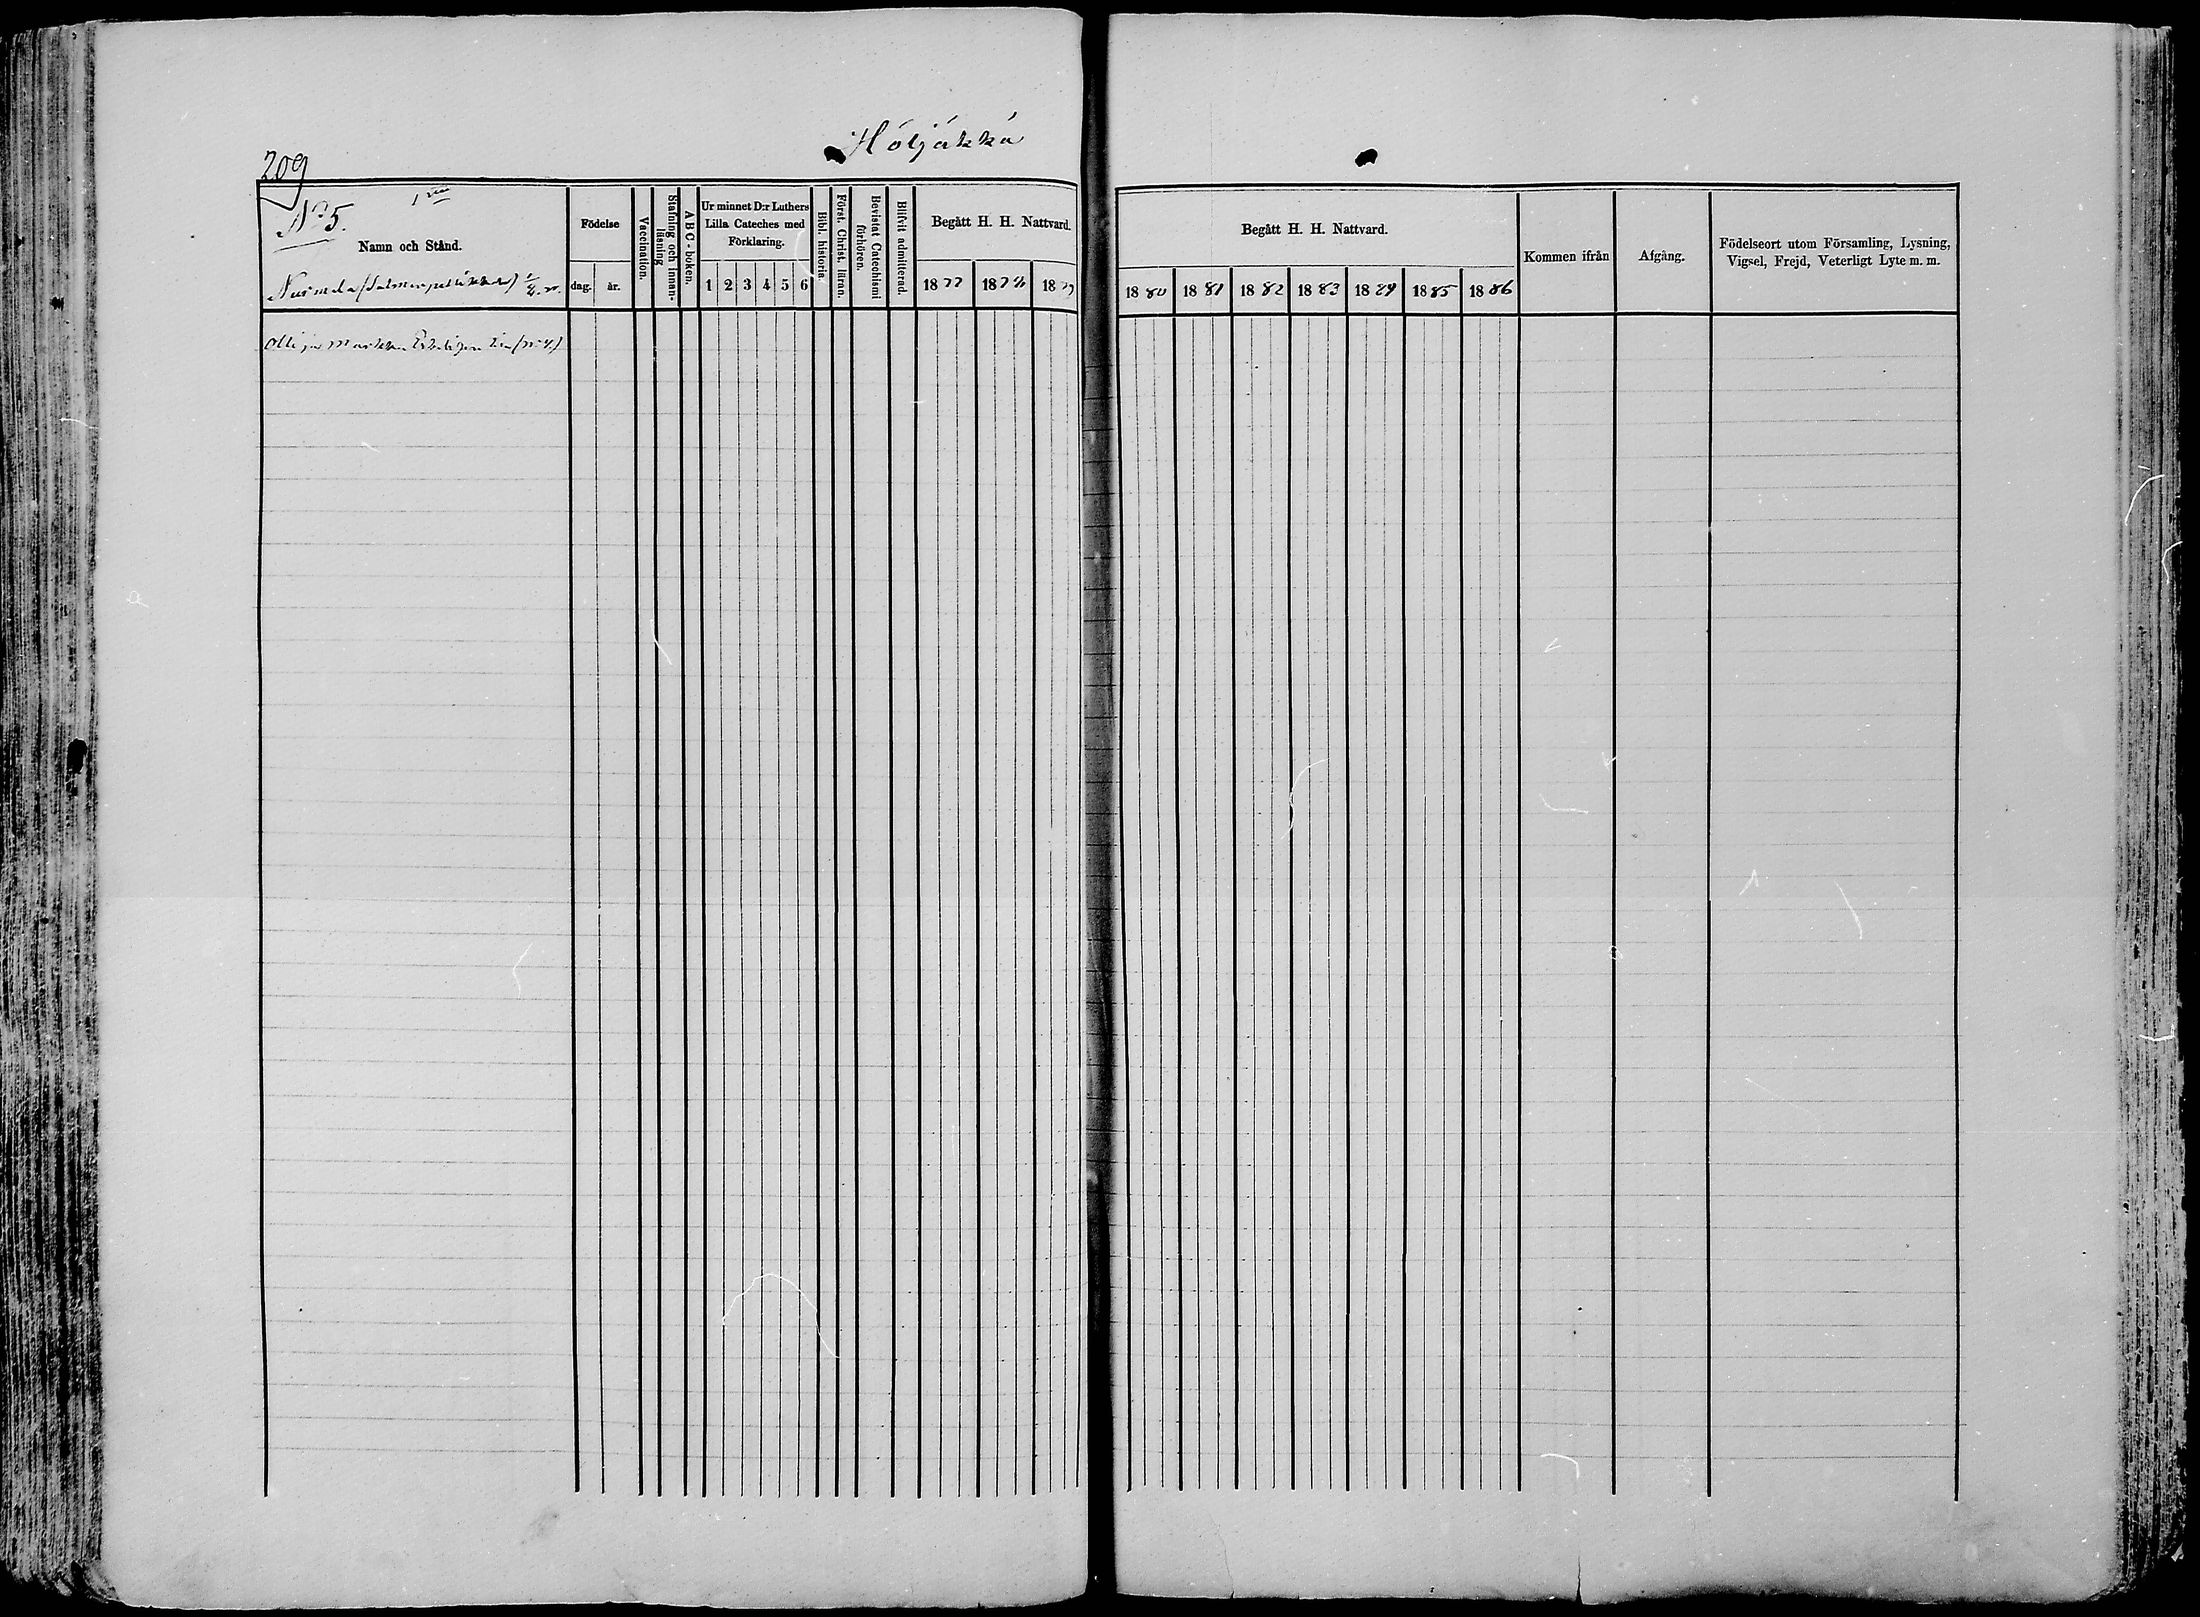 Höljäkkä
209
No 5.
Namn och Stånd.
Nurmela
Födelse
dag.
år.
Vaccination.
Stafning och innanläsning
ABC-boken.
Ur minnet D:r Luthers
Lilla Cateches med
Förklaring.
1 2 3 4 5 6
Bibl. historia
Först. Christ. läran.
Bevistat Catechismi
förhören.
Blifvit admitterad.
Begått H. H. Nattvard.
1877 1878 1879
Olli ja
Begått H. H. Nattvard.
1880 1881 1882 1883 1884 1885 1886
Kommen ifrån
Afgång.
Födelseort utom Församling, Lysning,
Vigsel, Frejd, Veterligt Lyte m. m.